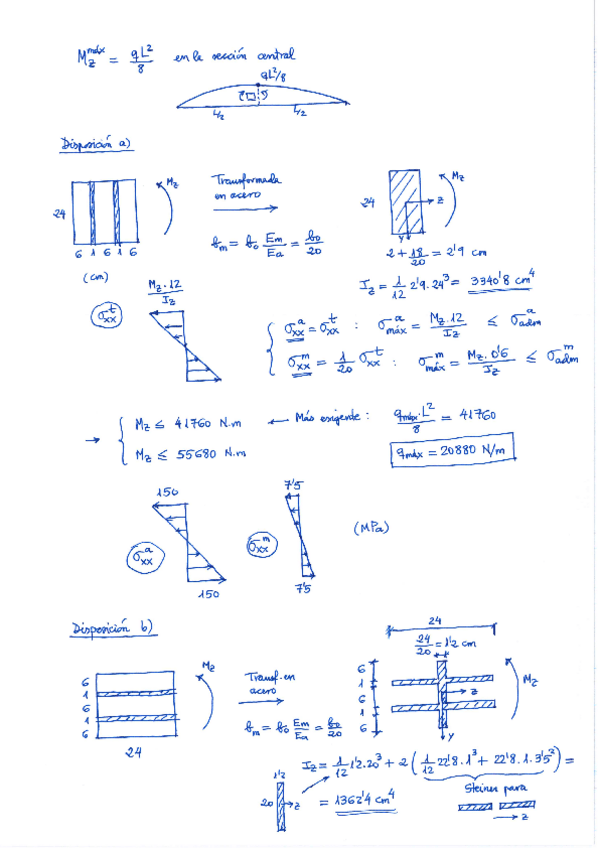 M_z^máx = qL²/8 en la sección central
qL²/8
L/2 L/2
Disposición a)
24
6 1 6 1 6
(cm)
M_z
Transformada
en acero
b_m = b_0 E_m/E_a = b_0/20
24
M_z
z
y
2 + 18/20 = 2'9 cm
I_z = 1/12 2'9 . 24³ = 3340'8 cm⁴
M_z . 12 / I_z
σ_xx^t
σ_xx^a = σ_xx^t : σ_máx^a = M_z . 12 / I_z ≤ σ_adm^a
σ_xx^m = 1/20 σ_xx^t : σ_máx^m = M_z . 0'6 / I_z ≤ σ_adm^m
→ { M_z ≤ 41760 N.m ← Más exigente : q_máx . L² / 8 = 41760
M_z ≤ 55680 N.m
q_máx = 20880 N/m
150
7'5
σ_xx^a
σ_xx^m
(MPa)
150
7'5
Disposición b)
6
1
6
1
6
24
M_z
Transf. en
acero
b_m = b_0 E_m/E_a = b_0/20
24
24/20 = 1'2 cm
6
1
6
1
6
z
y
M_z
I_z = 1/12 1'2 . 20³ + 2 ( 1/12 22'8 . 1³ + 22'8 . 1 . 3'5² ) =
= 1362'4 cm⁴
1'2
20
z
Steiner para
z